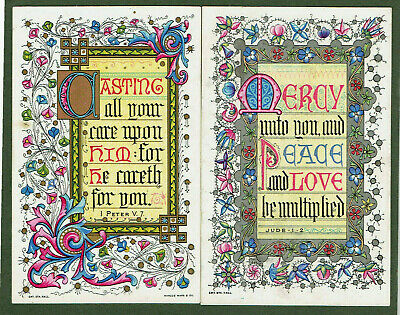 CASTING
all your
care upon
HIM: for
he careth
for you.
1 PETER V. 7
ENT. STA. HALL.
MARCUS WARD & CO.
MERCY
unto you, and
PEACE
and LOVE
be multiplied
JUDE-I-2
ENT. STA. HALL.